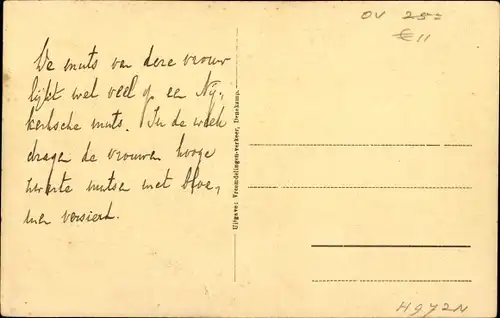 De muts van deze vrouw
lijkt wel veel op een Nij-
kerksche muts. In de week
dragen de vrouwen hooge
zwarte mutsen met bloe-
men versierd.
Uitgave: Vreemdelingen-verkeer, Denekamp.
OV 25=
€11
H972N